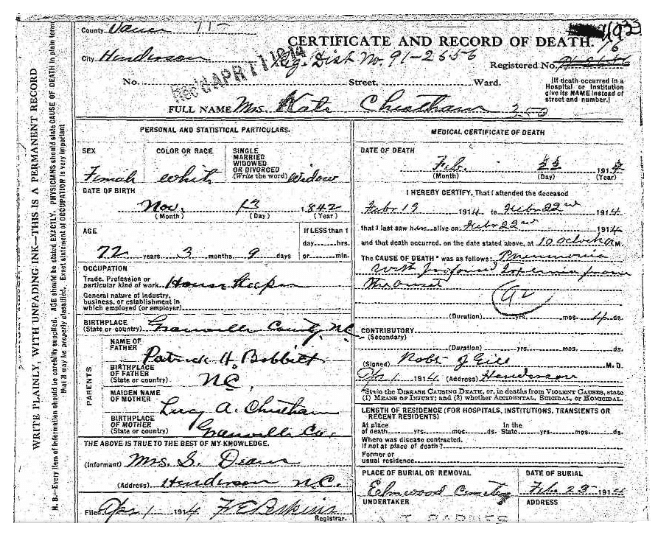 County Vance
CERTIFICATE AND RECORD OF DEATH.
City Henderson
Reg. Dist No. 91-2656
Registered No.
APR 11 1914
No. Street, Ward.
(If death occurred in a Hospital or Institution give its NAME instead of street and number.)
FULL NAME Mrs. Kate Cheatham
WRITE PLAINLY, WITH UNFADING INK—THIS IS A PERMANENT RECORD
N. B.—Every item of information should be carefully supplied. AGE should be stated EXACTLY. PHYSICIANS should state CAUSE OF DEATH in plain terms
that it may be properly classified. Exact statement of OCCUPATION is very important
PERSONAL AND STATISTICAL PARTICULARS.
SEX
Female
COLOR OR RACE
White
SINGLE
MARRIED
WIDOWED
OR DIVORCED
(Write the word) Widow
DATE OF BIRTH
Nov. 13 1842
(Month) (Day) (Year)
AGE
72 years 3 months 9 days
If LESS than 1
day hrs.
or min.
OCCUPATION
Trade, Profession or
particular kind of work House Keeper
General nature of industry,
business, or establishment in
which employed (or employer)
BIRTHPLACE
(State or country) Granville County, N.C.
PARENTS
NAME OF
FATHER
Patrick H. Bobbitt
BIRTHPLACE
OF FATHER
(State or country) N.C.
MAIDEN NAME
OF MOTHER
Lucy A. Cheatham
BIRTHPLACE
OF MOTHER
(State or country) Granville Co.
THE ABOVE IS TRUE TO THE BEST OF MY KNOWLEDGE.
(Informant) Mrs. S.
(Address) Henderson N.C.
Filed Apr 1 1914 F E Perkins
Registrar.
MEDICAL CERTIFICATE OF DEATH
DATE OF DEATH
Feb. 22 1914
(Month) (Day) (Year)
I HEREBY CERTIFY, That I attended the deceased
Feb. 19 1914 to Feb. 22nd 1914
that I last saw her alive on Feb. 22nd 1914
and that death occurred, on the date stated above, at 10 oclock M.
The CAUSE OF DEATH * was as follows: Pneumonia
with from
the onset
92
(Duration) yrs. mos. ds.
CONTRIBUTORY
(Secondary)
(Duration) yrs. mos. ds.
(Signed) Robt J Gill M. D.
Apr 1 1914 (Address) Henderson
*State the DISEASE CAUSING DEATH, or, in deaths from VIOLENT CAUSES, state
(1) MEANS OF INJURY; and (2) whether ACCIDENTAL, SUICIDAL, or HOMICIDAL.
LENGTH OF RESIDENCE (FOR HOSPITALS, INSTITUTIONS, TRANSIENTS OR
RECENT RESIDENTS)
At place In the
of death yrs. mos. ds. State yrs. mos. ds.
Where was disease contracted,
if not at place of death?
Former or
usual residence
PLACE OF BURIAL OR REMOVAL
Elmwood Cemetery
DATE OF BURIAL
Feb 23 1914
UNDERTAKER
ADDRESS